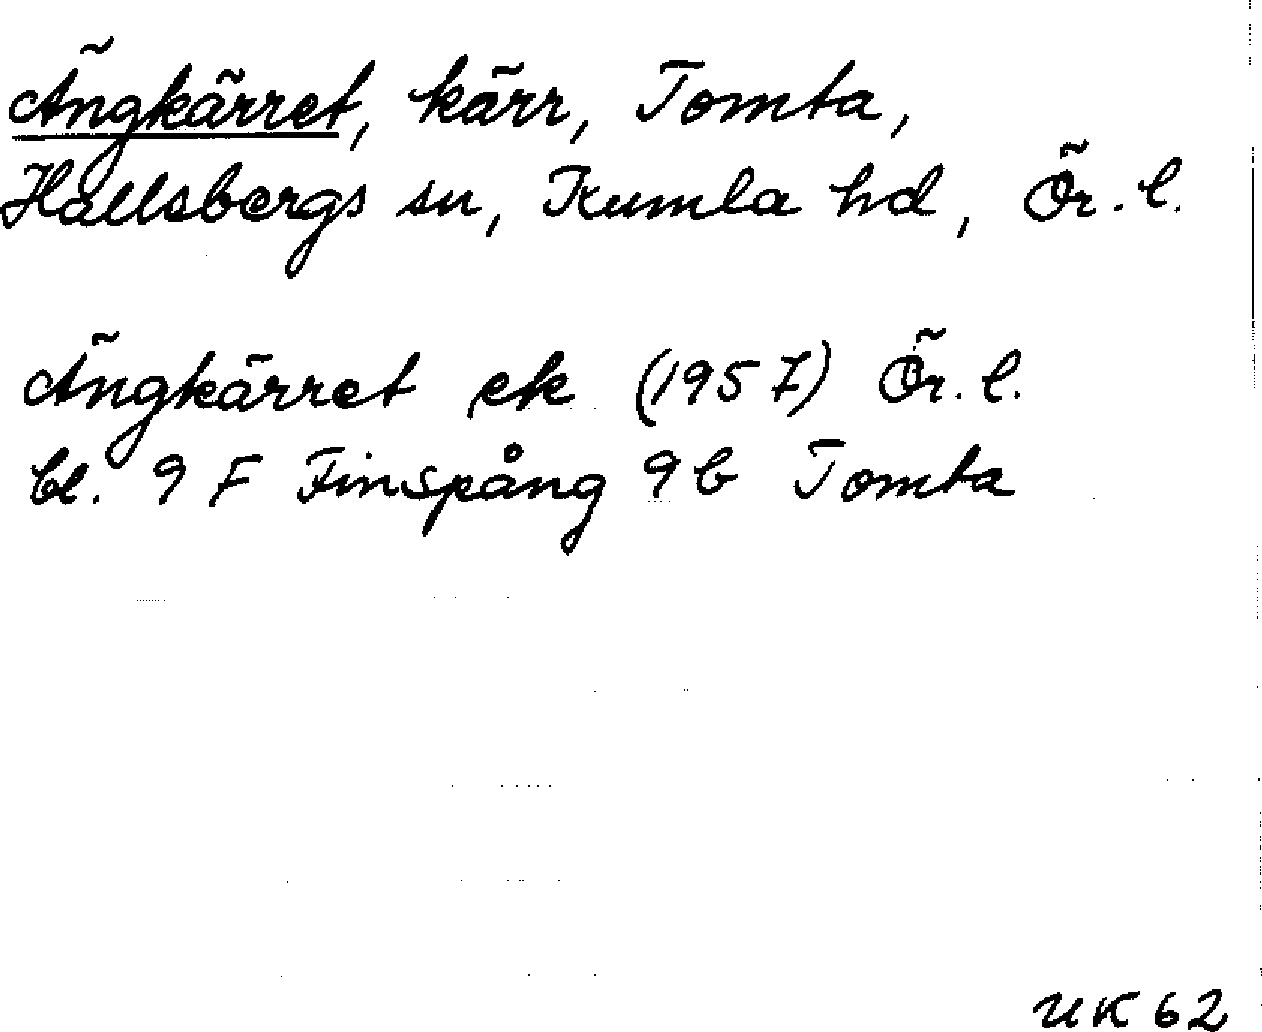 Ängkärret, kärr, Tomta,
Hallsbergs sn, Kumla hd, Ör. l.
Ängkärret ek (1957) Ör. l.
bl. 9 F Finspång 9 b Tomta
UK 62